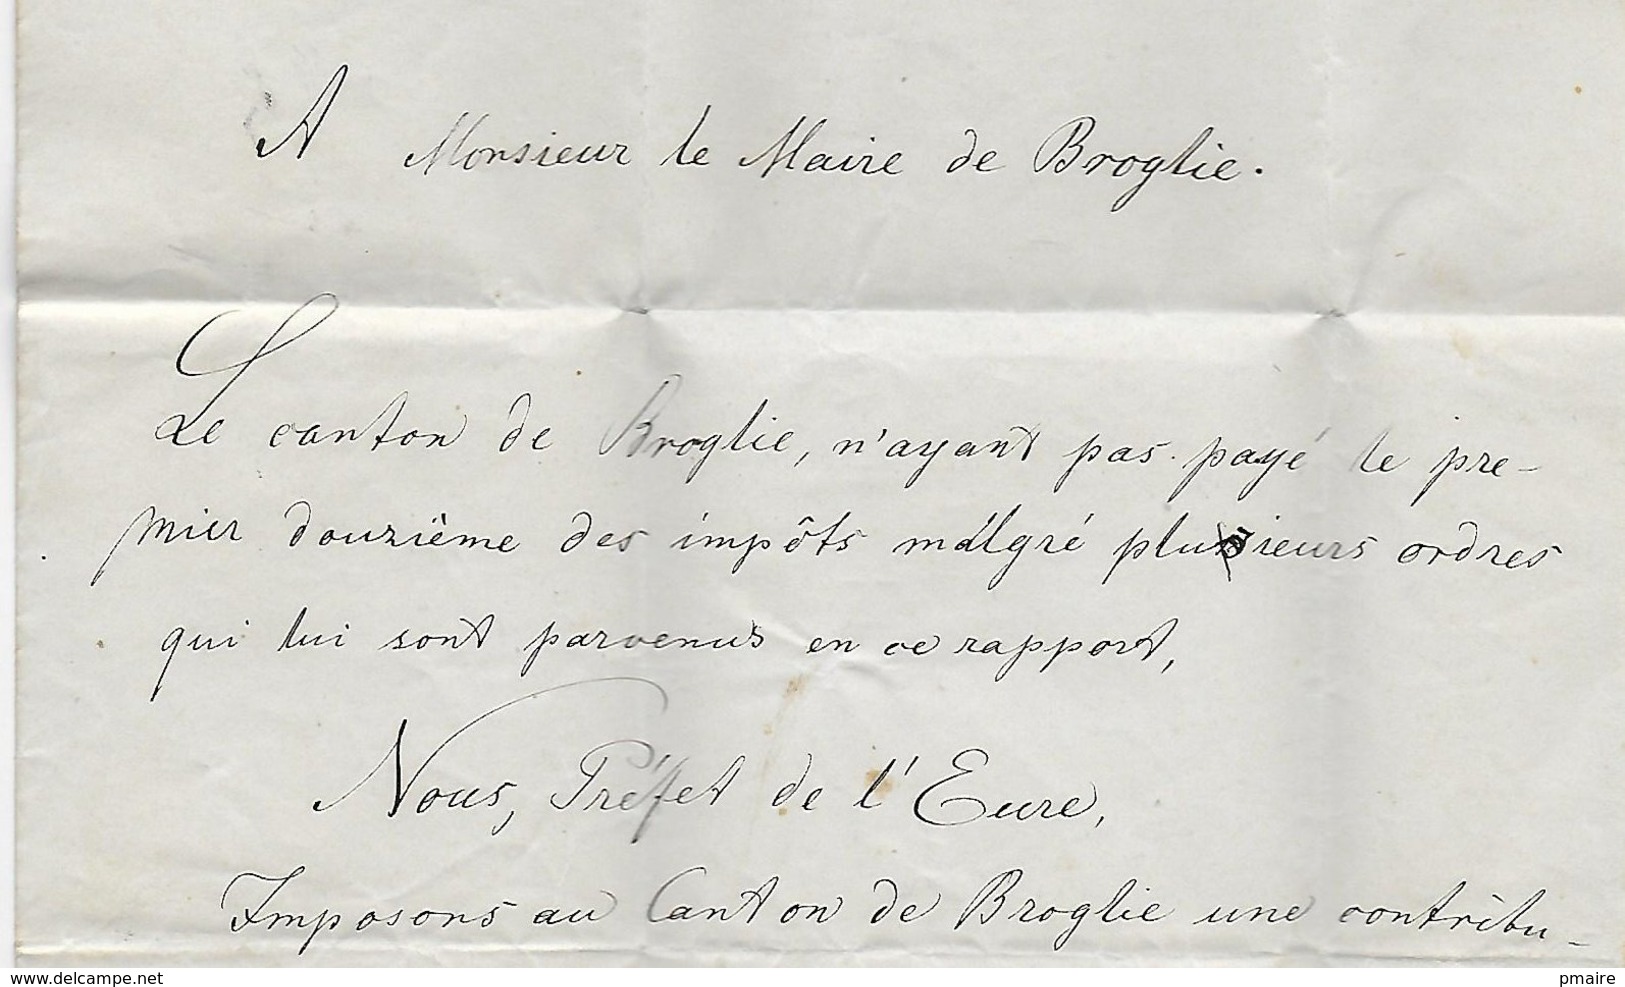 A Monsieur le Maire de Broglie.
Le canton de Broglie, n'ayant pas payé le pre-
mier douzième des impôts malgré plusieurs ordres
qui lui sont parvenus en ce rapport,
Nous, Préfet de l'Eure,
Imposons au Canton de Broglie une contribu-
www.delcampe.net
pmaire